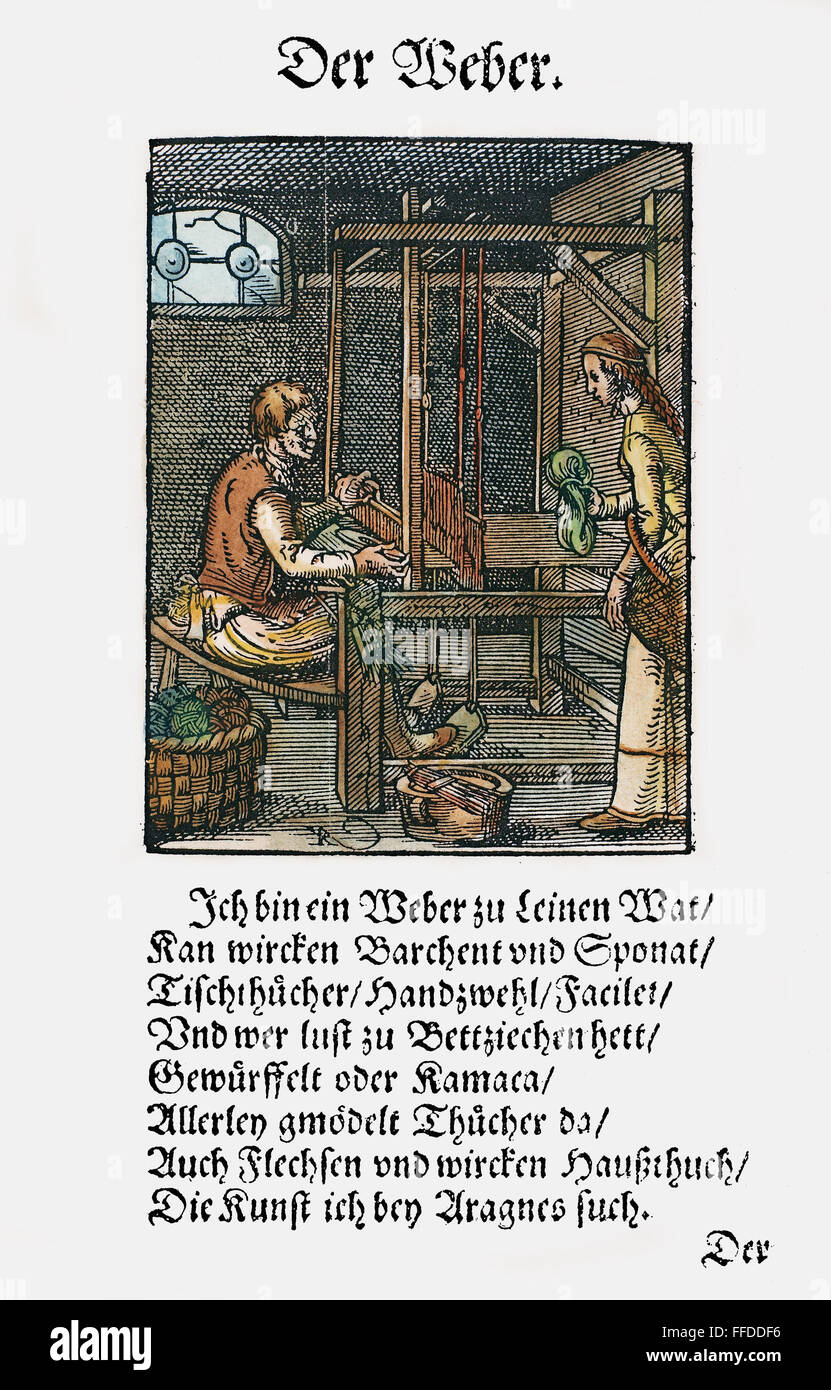 Der Weber.
Ich bin ein Weber zu Leinen Wat/
Kan wircken Barchent vnd Sponat/
Tischthuͤcher/Handzwehl/Facilet/
Vnd wer lust zu Bettziechen hett/
Gewuͤrffelt oder Kamaca/
Allerley gmoͤdelt Thuͤcher da/
Auch Flechsen vnd wircken Haußthuch/
Die Kunst ich bey Aragnes such.
Der
alamy
Image ID: FFDDF6
www.alamy.com